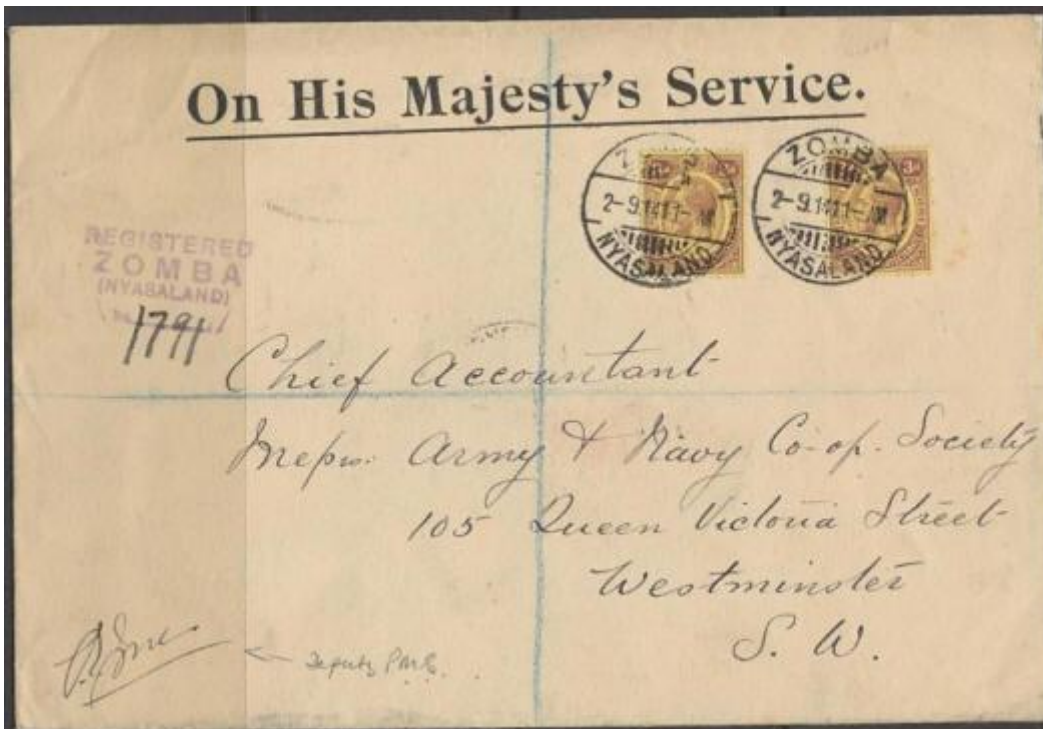 On His Majesty's Service.
ZOMBA
2-9.14.11-AM
NYASALAND
ZOMBA
2-9.14.11-AM
NYASALAND
3d
REGISTERED
ZOMBA
(NYASALAND)
1791
Chief Accountant
Messrs. Army & Navy Co-op. Society
105 Queen Victoria Street
Westminster
S. W.
Deputy PMG.